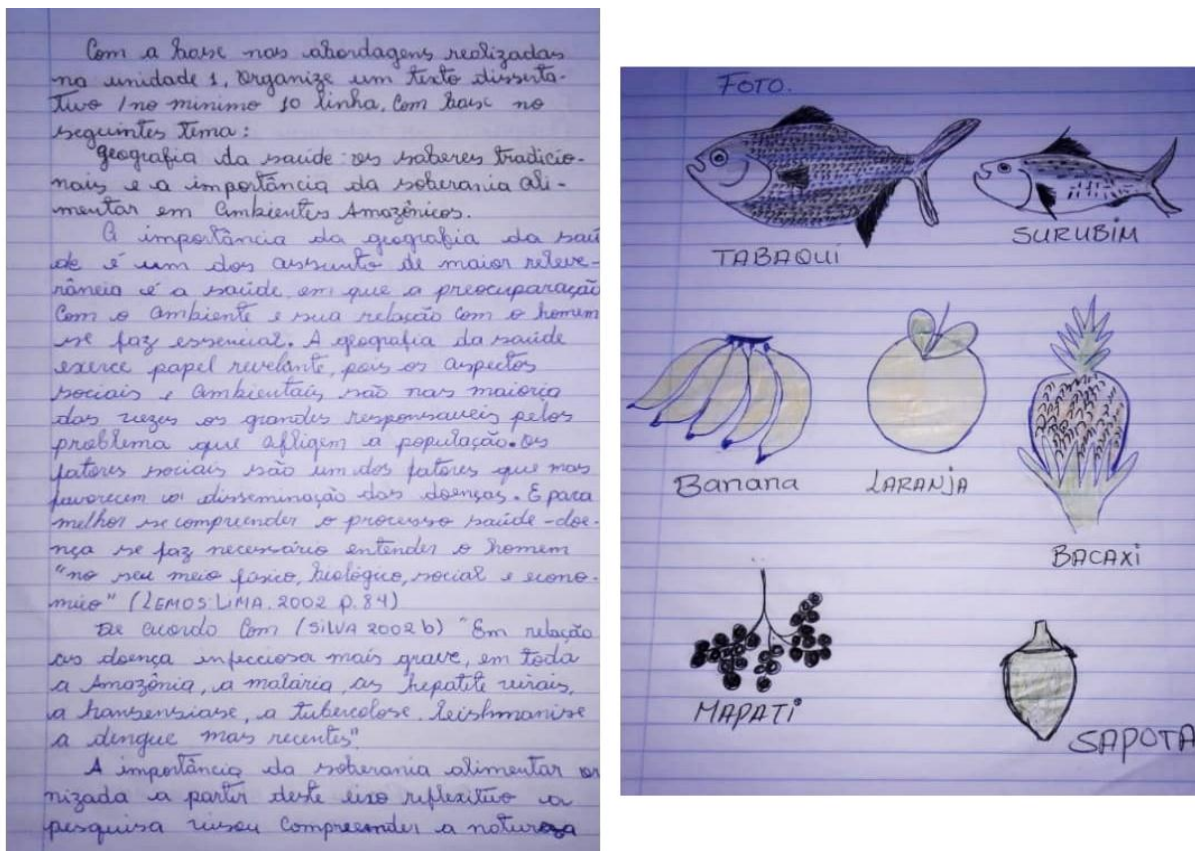 Com a base nas abordagens realizadas
na unidade 1, Organize um texto disserta-
tivo / no minimo 10 linha, Com base no
seguintes tema:
geografia da saúde: os saberes tradicio-
nais e a importância da soberania ali-
mentar em ambientes Amazônicos.
A importância da geografia da saú
de é um dos assunto de maior releve-
rância é a saúde, em que a preocuparação
Com o ambiente e sua relação com o homem
se faz essencial. A geografia da saúde
exerce papel revelante, pois os aspectos
sociais e ambientais são nas maioria
das vezes os grandes responsaveis pelos
problema que afligem a população. os
fatores sociais são um dos fatores que mas
favorecem a disseminação das doenças. E para
melhor se compreender o processo saúde-doe-
nça se faz necessário entender o homem
"no seu meio fisico, biológico, social e econo-
mico" (LEMOS LIMA. 2002 p. 84)
De acordo Com (SILVA 2002 b) "Em relação
as doença infecciosa mais grave, em toda
a Amazônia, a malária, as hepatite virais,
a hansensiase, a tubercolose, leishmanise
a dengue mas recentes"
A importância da soberania alimentar or
nizada a partir deste eixo reflexitivo a
pesquisa visou compreender a natureza
FOTO.
TABAQUI
SURUBIM
Banana
LARANJA
BACAXI
MAPATI
SAPOTA